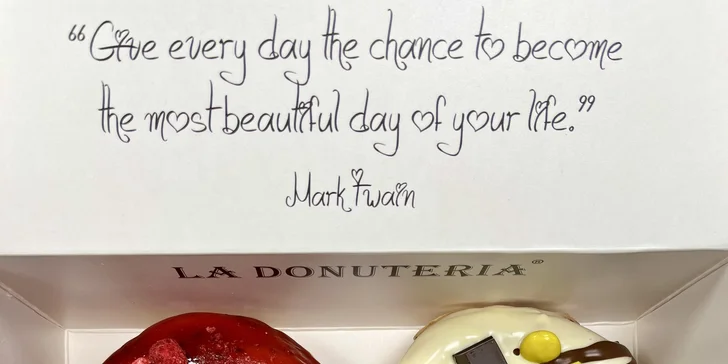 “Give every day the chance to become
the most beautiful day of your life.”
Mark Twain
LA DONUTERIA®